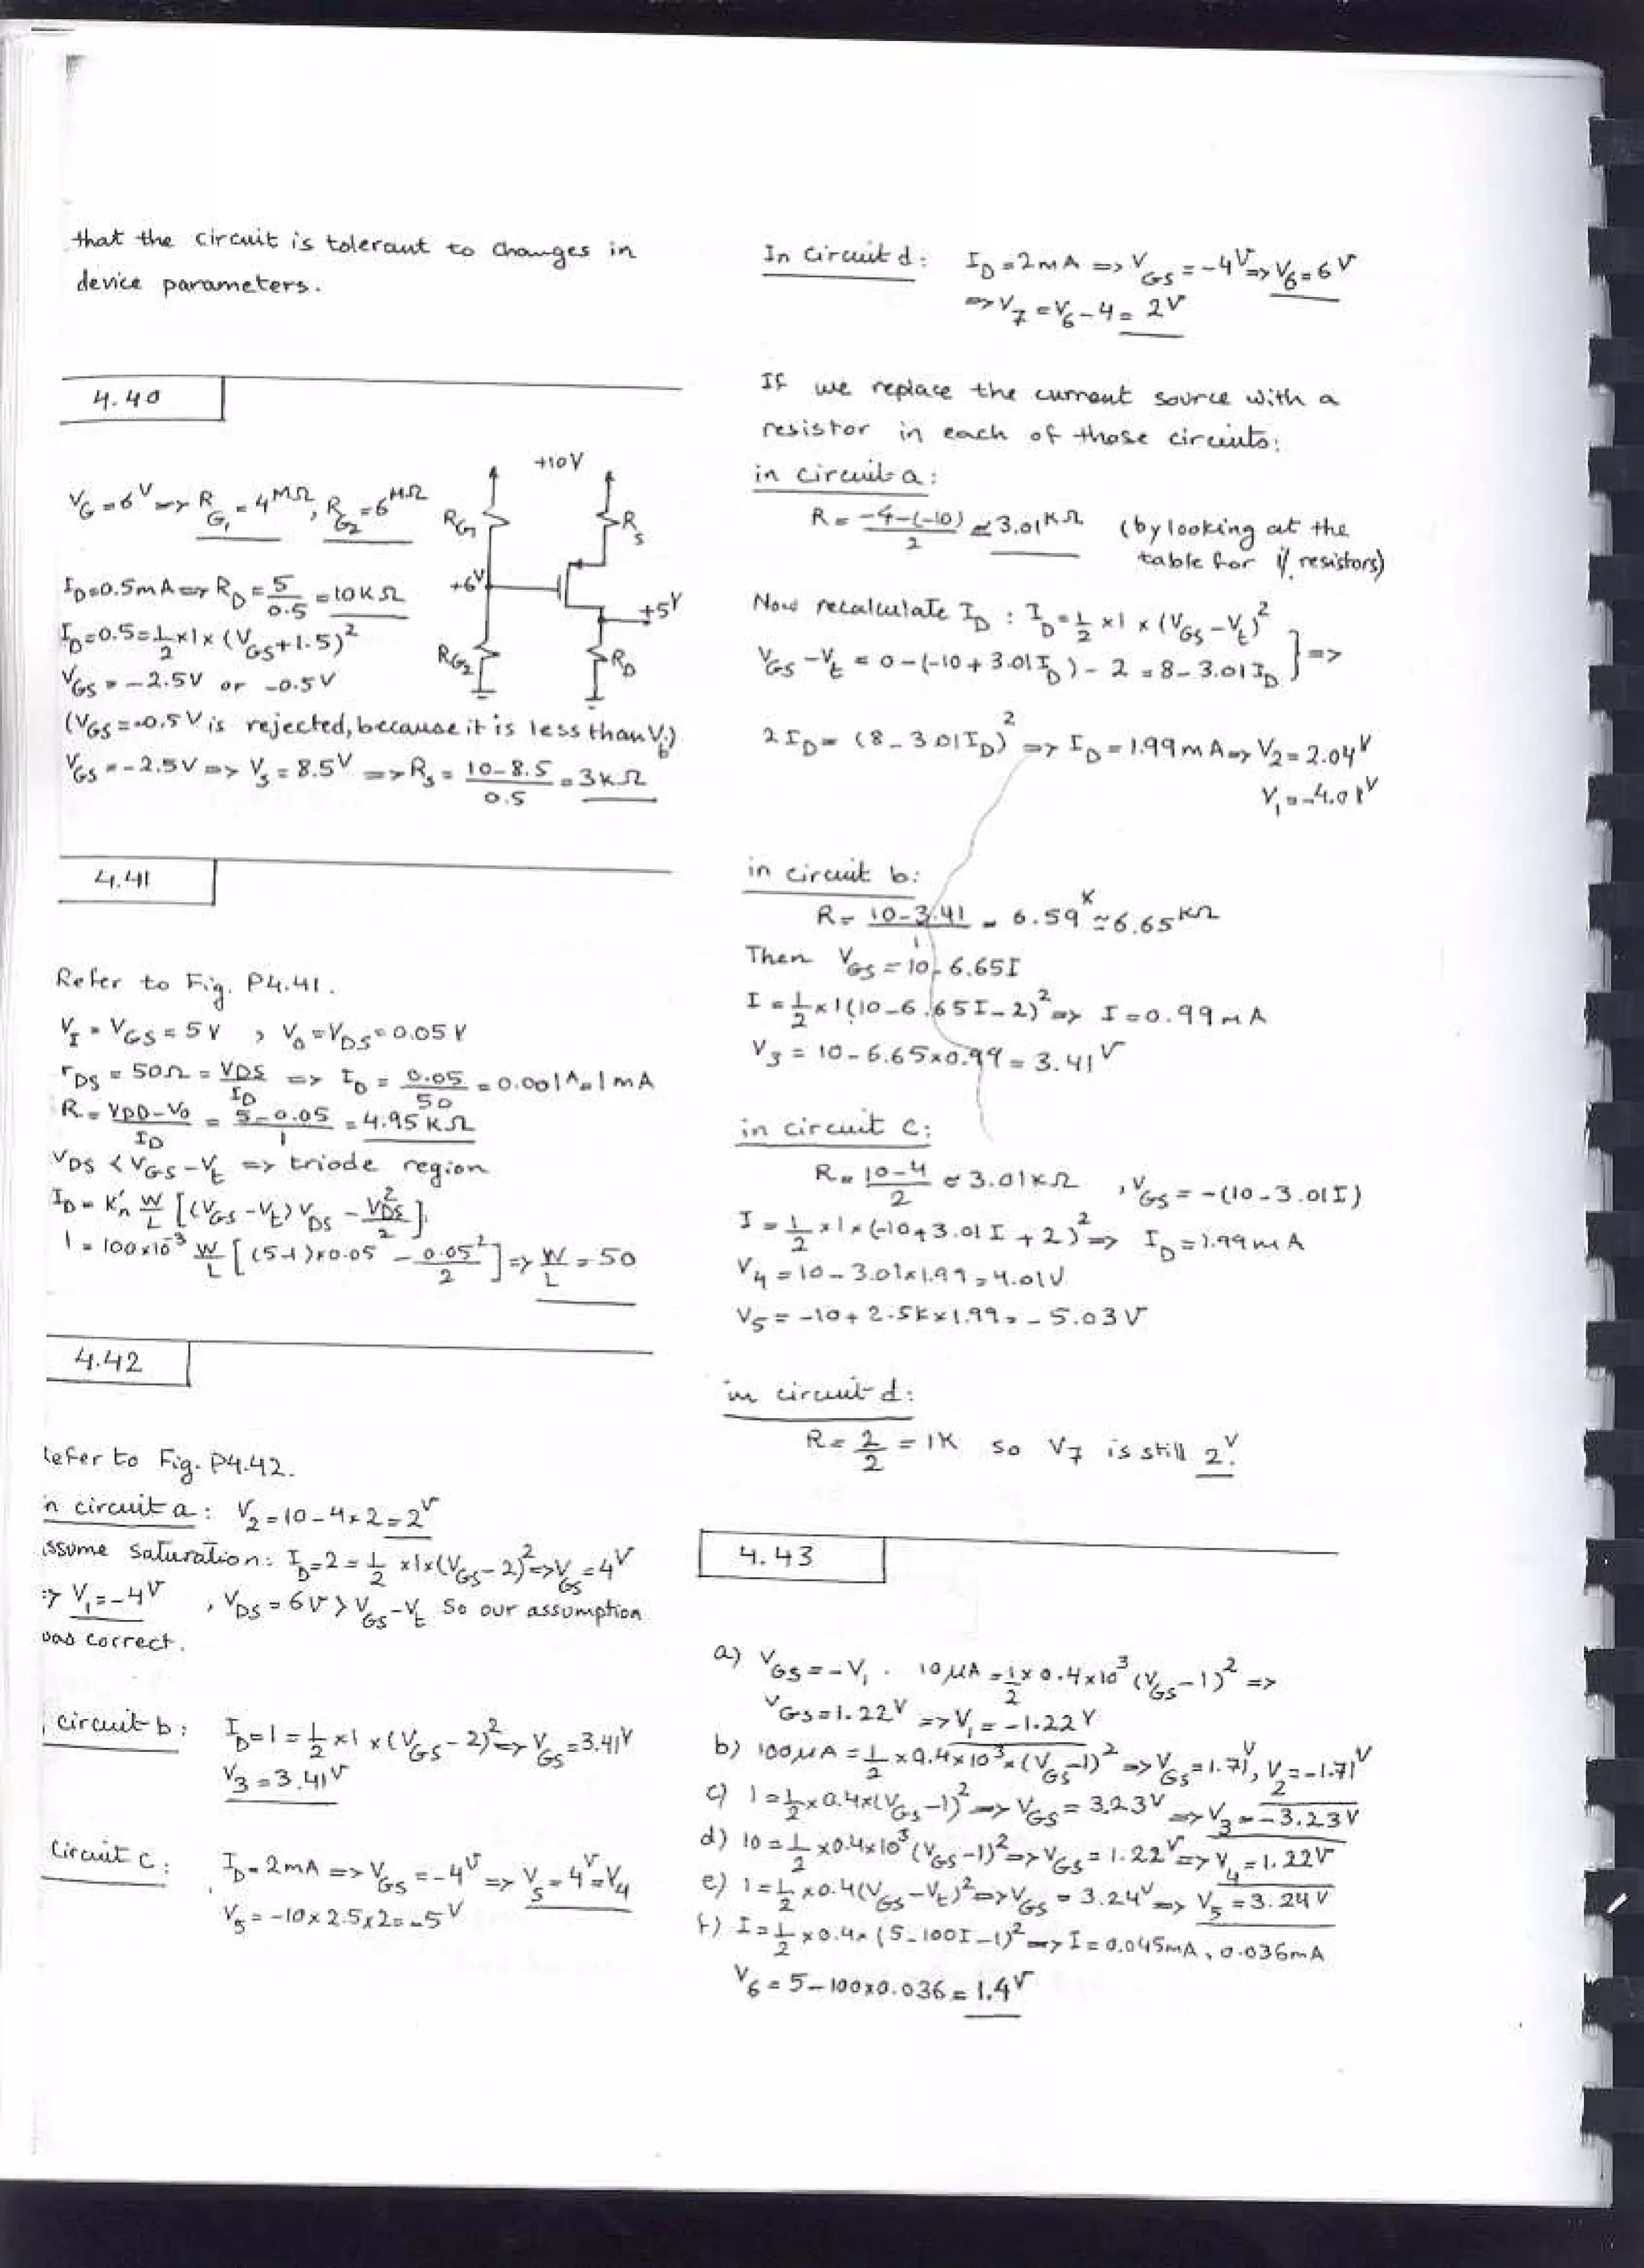 that the circuit is tolerant to changes in
device parameters.
4.40
V_G = 6V => R_G1 = 4MΩ, R_G2 = 6MΩ
+10V
R_G1
R_S
+6V
+5V
R_G2
R_D
I_D=0.5mA => R_D = 5/0.5 = 10KΩ
I_D=0.5=1/2×1×(V_GS+1.5)²
V_GS = -2.5V or -0.5V
(V_GS=-0.5V is rejected, because it is less than V_t)
V_GS = -2.5V => V_S = 8.5V => R_S = (10-8.5)/0.5 = 3KΩ
4.41
Refer to Fig. P4.41.
V_I = V_GS = 5V , V_O = V_DS = 0.05V
r_DS = 50Ω = V_DS/I_D => I_D = 0.05/50 = 0.001A = 1mA
R = (V_DD-V_O)/I_D = (5-0.05)/1 = 4.95KΩ
V_DS < V_GS-V_t => triode region
I_D = K'_n W/L [(V_GS-V_t)V_DS - V_DS²/2]
1 = 100×10⁻³ W/L [(5-1)×0.05 - 0.05²/2] => W/L = 50
4.42
efer to Fig. P4.42.
n circuit a: V_2 = 10-4×2 = 2V
ssume saturation: I_D=2=1/2×1×(V_GS-2)² => V_GS=4V
=> V_1=-4V , V_DS=6V > V_GS-V_t So our assumption
was correct.
circuit b: I_D=1=1/2×1×(V_GS-2)² => V_GS=3.41V
V_3=3.41V
circuit c: I_D=2mA => V_GS=-4V => V_S=4V=V_4
V_5 = -10×2.5×2=-5V
In circuit d: I_D=2mA => V_GS=-4V => V_6=6V
=> V_7=V_6-4=2V
If we replace the current source with a
resistor in each of those circuits:
in circuit a:
R = (-4-(-10))/2 ≃ 3.01KΩ (by looking at the
table for 1% resistors)
Now recalculate I_D : I_D=1/2×1×(V_GS-V_t)²
V_GS-V_t = 0-(-10+3.01I_D)-2 = 8-3.01I_D } =>
2I_D = (8-3.01I_D)² => I_D=1.99mA => V_2=2.04V
V_1=-4.01V
in circuit b:
R = (10-3.41)/1 = 6.59K ≃ 6.65KΩ
Then V_GS=10-6.65I
I=1/2×1(10-6.65I-2)² => I=0.99mA
V_3 = 10-6.65×0.99=3.41V
in circuit c:
R = (10-4)/2 ≃ 3.01KΩ , V_GS=-(10-3.01I)
I=1/2×1×(-10+3.01I+2)² => I_D=1.99mA
V_4=10-3.01×1.99=4.01V
V_5 = -10+2.5K×1.99=-5.03V
in circuit d:
R=2/2=1K so V_7 is still 2V.
4.43
a) V_GS=-V_1 . 10μA=1/2×0.4×10³(V_GS-1)² =>
V_GS=1.22V => V_1=-1.22V
b) 100μA=1/2×0.4×10³×(V_GS-1)² => V_GS=1.71V, V_2=-1.71V
c) 1=1/2×0.4×(V_GS-1)² => V_GS=3.23V => V_3=-3.23V
d) 10=1/2×0.4×10³(V_GS-1)² => V_GS=1.22V => V_4=1.22V
e) 1=1/2×0.4(V_GS-V_t)² => V_GS=3.24V => V_5=3.24V
f) I=1/2×0.4×(5-100I-1)² => I=0.045mA, 0.036mA
V_6=5-100×0.036=1.4V